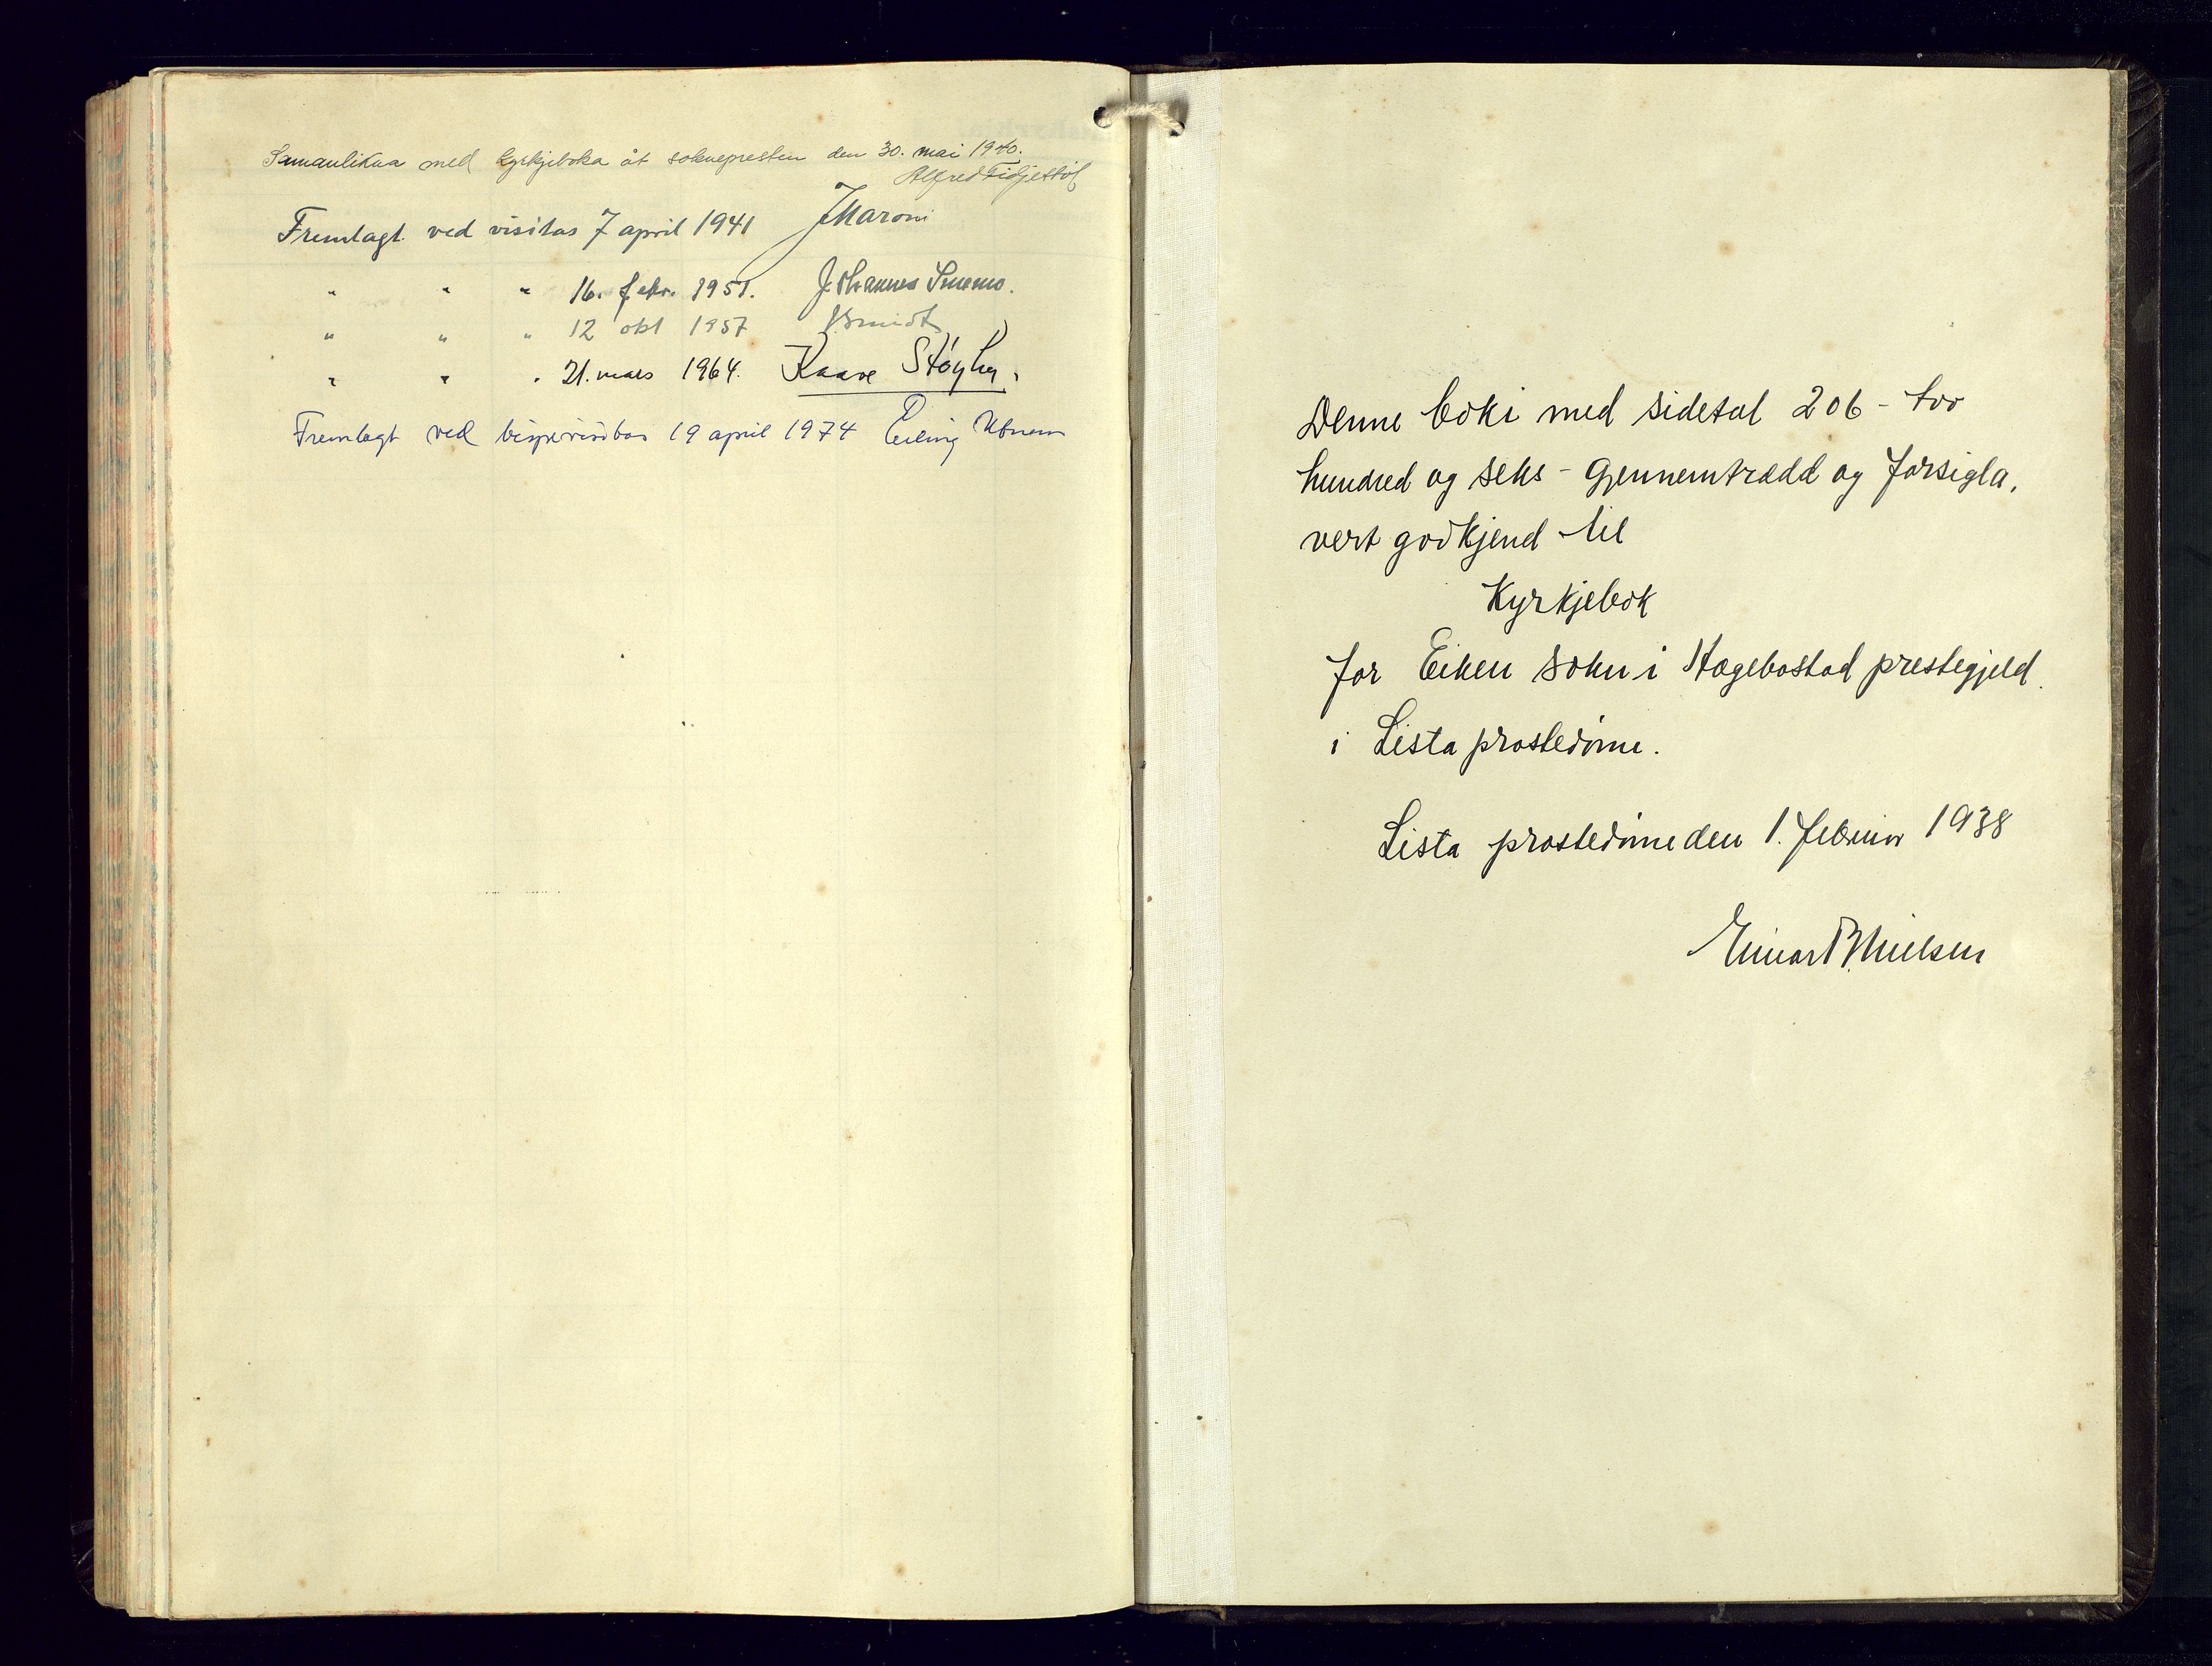 Samanlikna med kyrkjeboka åt soknepresten den 30. mai 1940.
Alfred Fidjestøl
Fremlagt ved visitas 7 april 1941 JMaroni
" " " 16. febr. 1951. Johannes Smemo.
" " " 12 okt 1957 JSmidt
" " " 21. mars 1964. Kaare Støylen.
Fremlagt ved bispevisitas 19 april 1974 Erling Utnem
Denne boki med sidetal 206 - tvo
hundred og seks - gjennemtrædd og forsigla,
vert godkjend til
Kyrkjebok
for Eiken sokn i Hægebostad prestegjeld
i Lista prostedöme.
Lista prostedöme den 1. februar 1938
Einar B. Nielsen